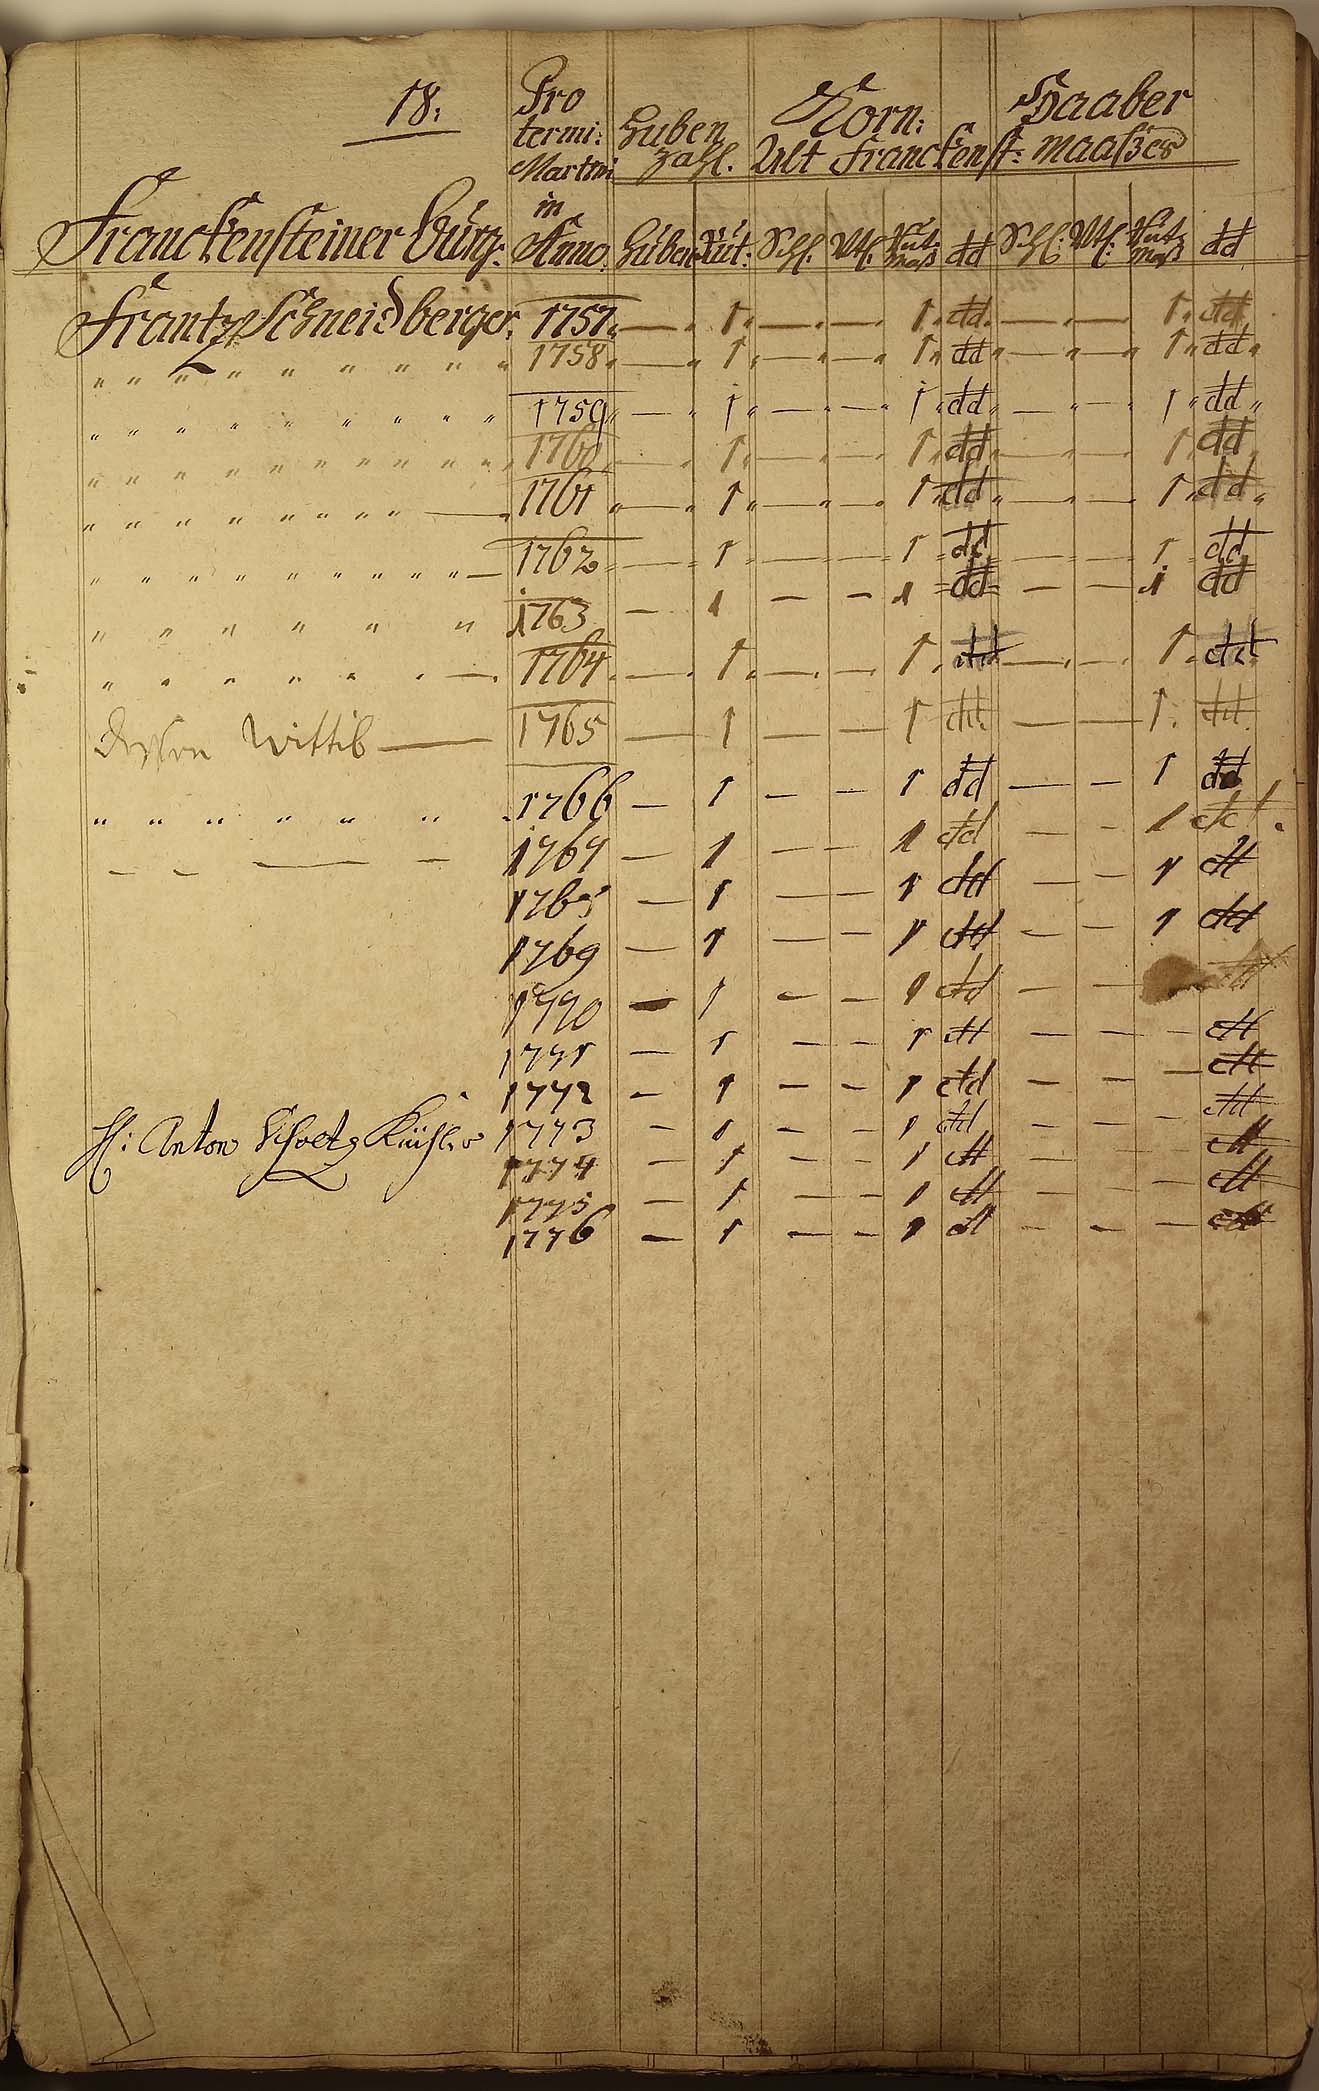 18.
Pro termi: Martini in Anno
Huben Zahl.
Korn: Haaber
Alt Franckenst: Maaßes
Franckensteiner Bürg: Huben Rut: Schl. Vtl. dd Schl: Vtl: dd
Frantz Schneidberger. 1757 — 1 — — 1 dd — — 1 dd
" " " " " " " " " 1758 — 1 — — 1 dd — — 1 dd
" " " " " " " " " 1759 — 1 — — 1 dd — — 1 dd
" " " " " " " " " 1760 — 1 — — 1 dd — — 1 dd
" " " " " " " " " — 1761 — 1 — — 1 dd — — 1 dd
" " " " " " " " " — 1762 — 1 — — 1 dd — — 1 dd
" " " " " " 1763 — 1 — — 1 dd — — 1 dd
" " " " " " — 1764 — 1 — — 1 dd — — 1 dd
Dessen Wittib — 1765 — 1 — — 1 dd — — 1 dd
" " " " " " 1766 — 1 — — 1 dd — — 1 dd
— — — — 1767 — 1 — — 1 dd — — 1 dd
1768 — 1 — — 1 dd — — 1 dd
1769 — 1 — — 1 dd — — 1 dd
1770 — 1 — — 1 dd — — dd
1771 — 1 — — 1 dd — — — dd
1772 — 1 — — 1 dd — — — dd
H: Anton 1773 — 1 — — 1 dd — — — dd
1774 — 1 — — 1 dd — — — dd
1775 — 1 — — 1 dd — — — dd
1776 — 1 — — 1 dd — — — dd